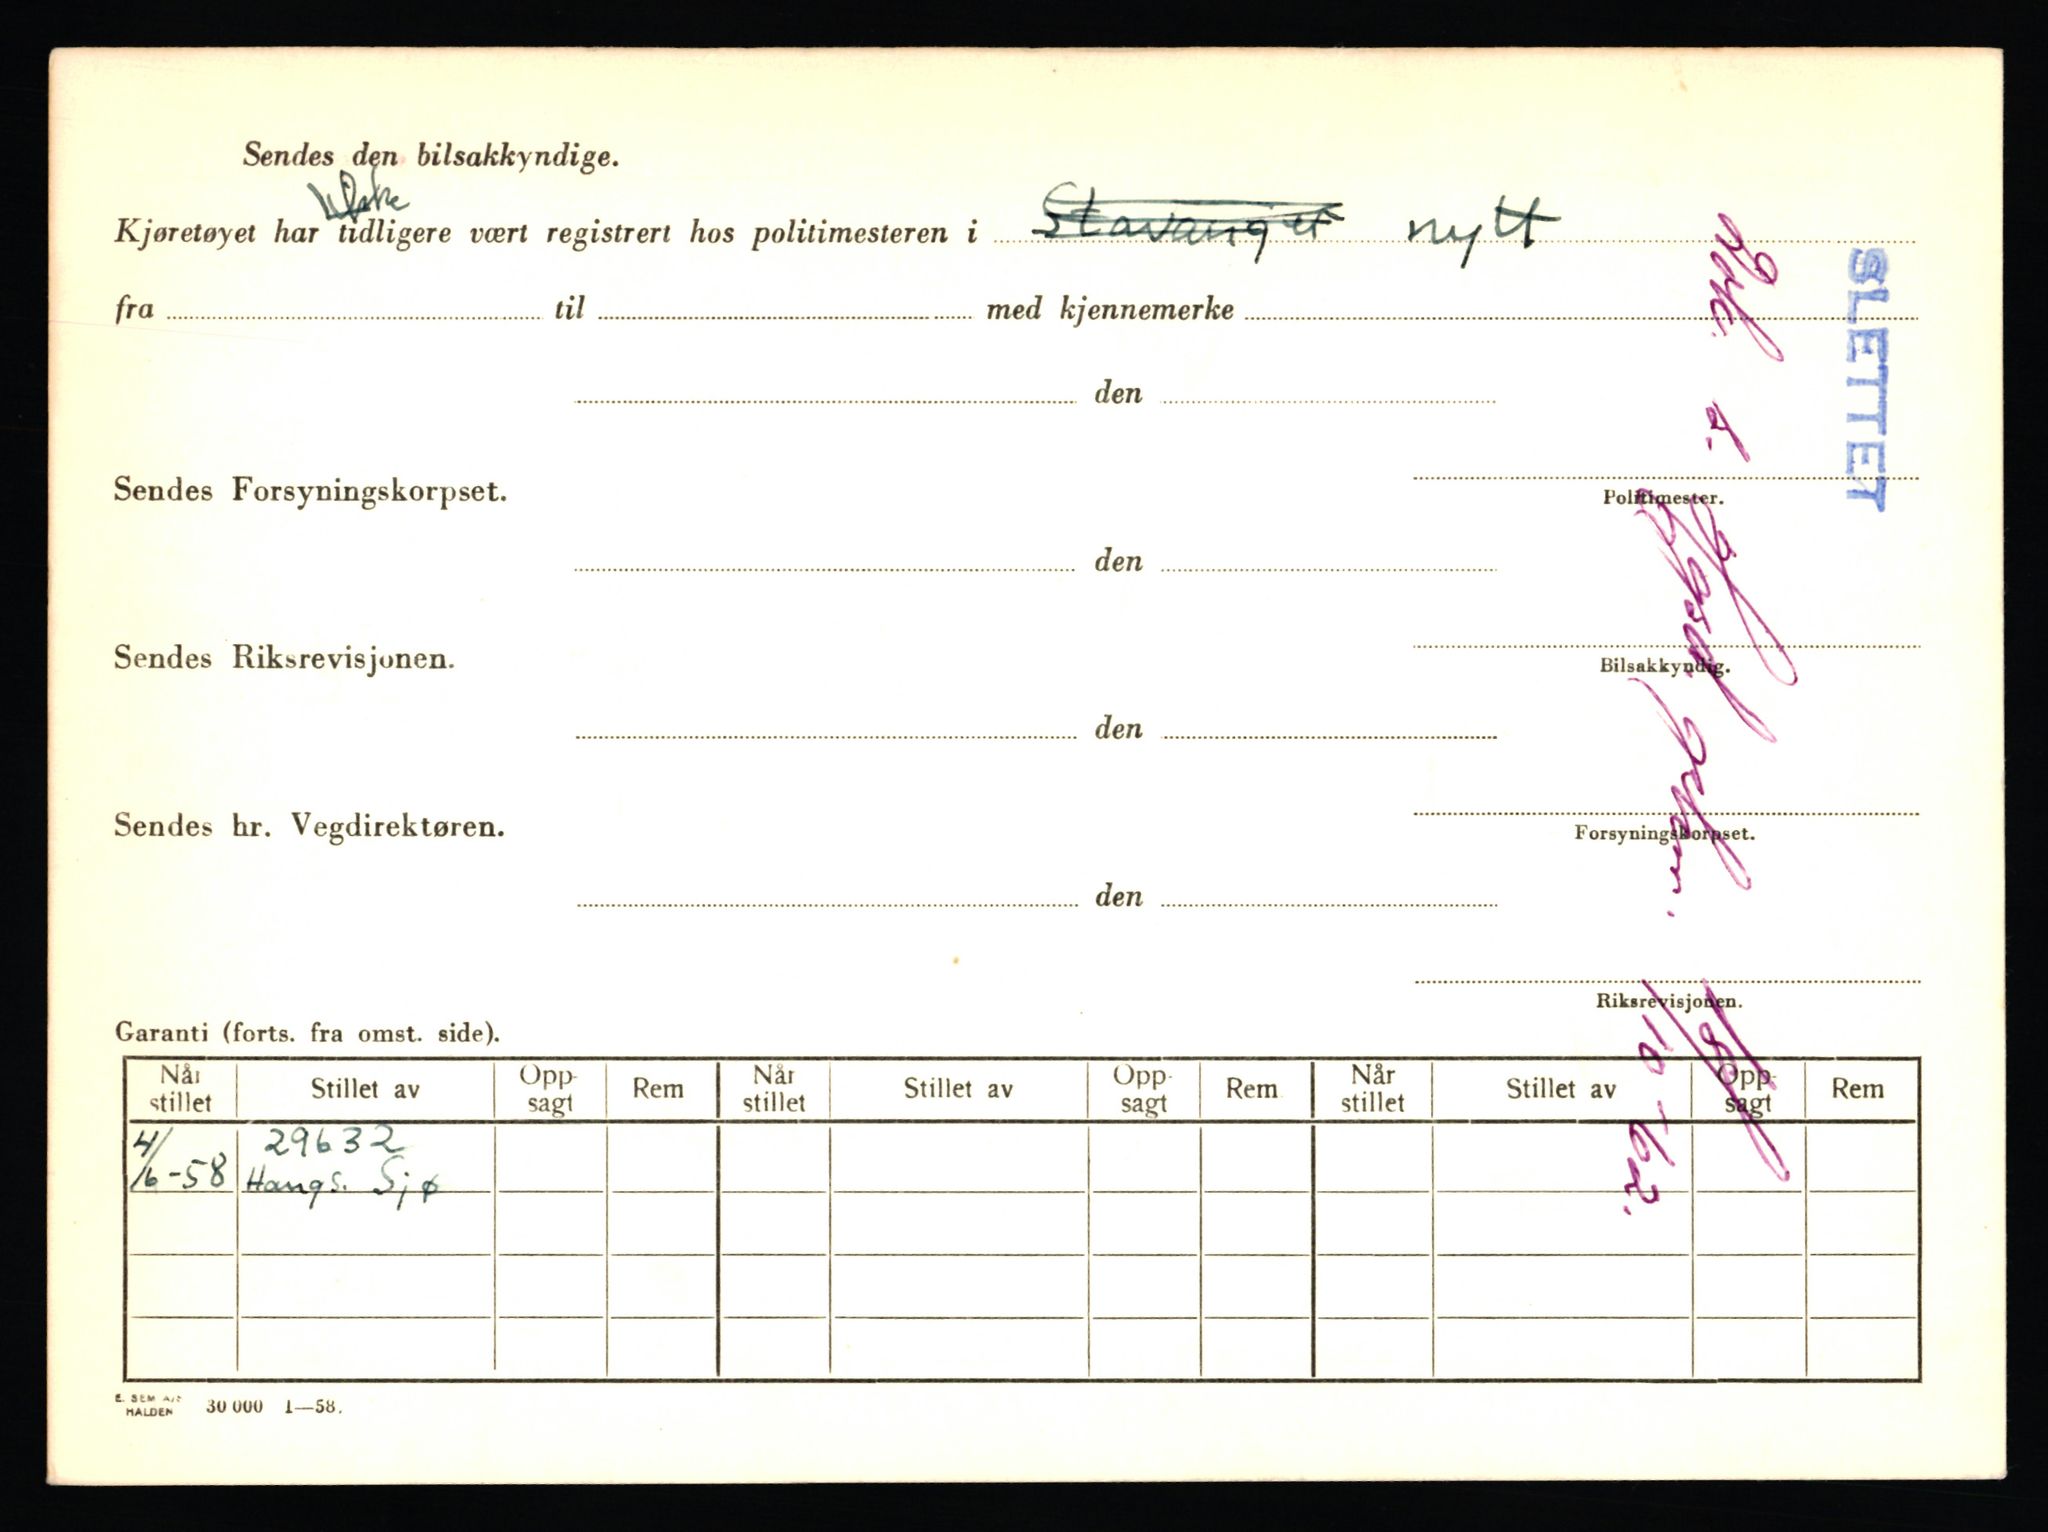 Sendes den bilsakkyndige.
ikke
Kjøretøyet har tidligere vært registrert hos politimesteren i Stavanger nytt
fra til med kjennemerke
den
Politimester.
Sendes Forsyningskorpset.
den
Bilsakkyndig.
Sendes Riksrevisjonen.
den
Forsyningskorpset.
Sendes hr. Vegdirektøren.
den
Riksrevisjonen.
Garanti (forts. fra omst. side).
Når stillet Stillet av Opp-sagt Rem Når stillet Stillet av Opp-sagt Rem Når stillet Stillet av Opp-sagt Rem
4/6-58 29632
Haugs. Sjø
E. SEM A/S
HALDEN 30 000 1—58.
SLETTET
18/10-62.